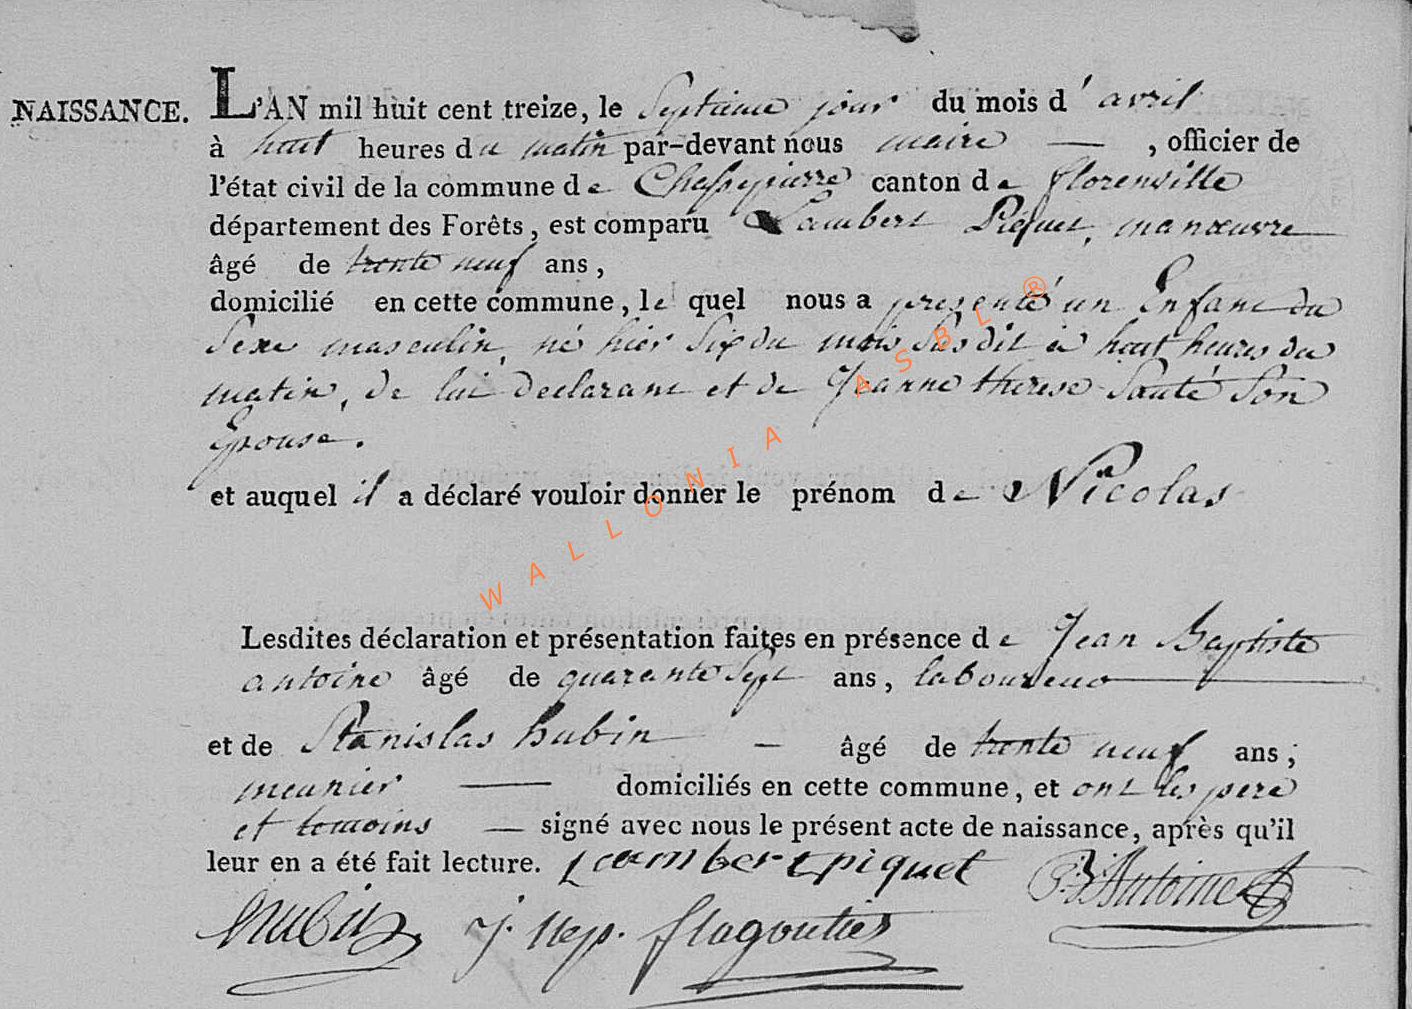 NAISSANCE. L'AN mil huit cent treize, le Septieme jour du mois d' avril
à huit heures du matin par-devant nous maire — , officier de
l'état civil de la commune de Chassepierre canton de florenville
département des Forêts, est comparu Lambert Piquet, manœuvre
âgé de trente neuf ans,
domicilié en cette commune, le quel nous a presenté un Enfant du
Sexe masculin, né hier Six du mois Susdit à huit heures du
matin, de lui declarant et de Jeanne therese Sauté Son
Epouse.
et auquel il a déclaré vouloir donner le prénom de Nicolas
Lesdites déclaration et présentation faites en présence de Jean Baptiste
antoine âgé de quarante Sept ans, laboureur
et de Stanislas hubin — âgé de trente neuf ans;
meunier — domiciliés en cette commune, et ont les pere
et temoins — signé avec nous le présent acte de naissance, après qu'il
leur en a été fait lecture. Lambert piquet J:B: Antoine
hubin J. Nep. flagontier
WALLONIA ASBL ®